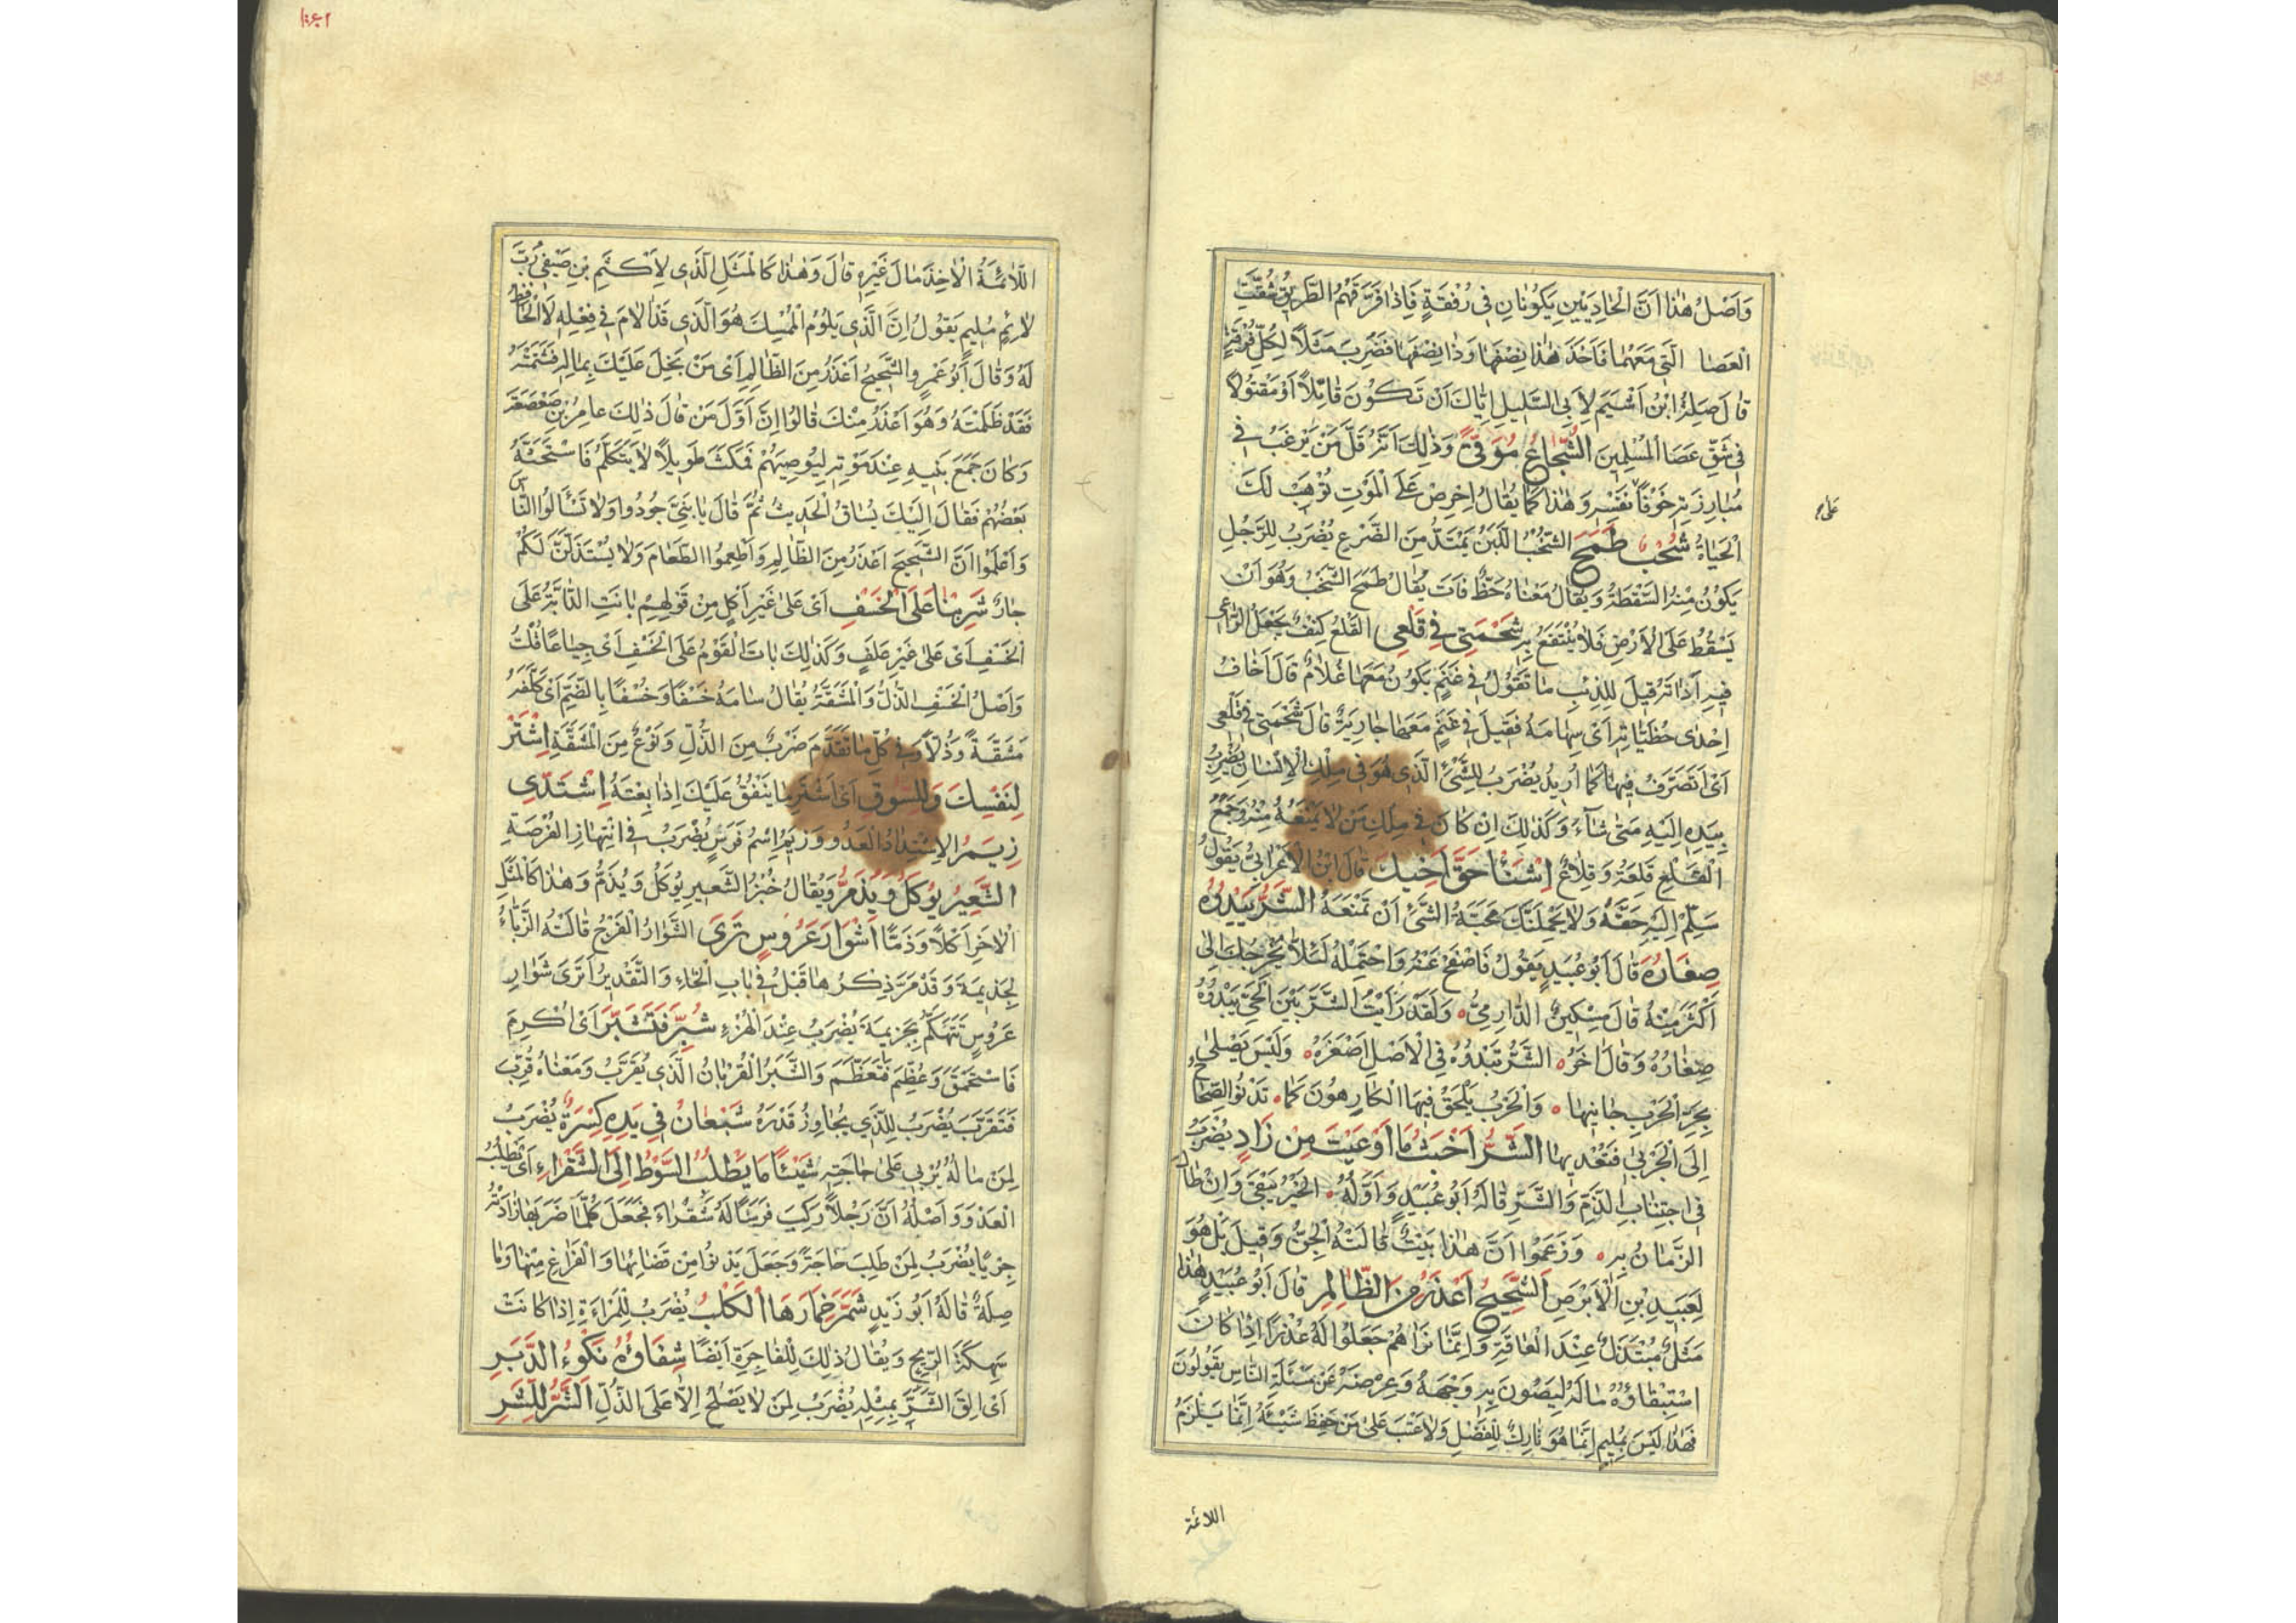 وَاَصْلُ هٰذَا اَنَّ الْحَادِيَيْنِ يَكُونَانِ فِي رُفْقَةٍ فَاِذَا فَرَّقَهُمُ الطَّرِيقُ شُقَّتِ
الْعَصَا الَّتِي مَعَهُمَا فَاَخَذَ هٰذَا نِصْفَهَا وَذَا نِصْفَهَا فَضُرِبَ مَثَلًا لِكُلِّ فُرْقَةٍ
قَالَ صِلَةُ ابْنُ اَشْيَمَ لِاَبِي السَّلِيلِ اِيَّاكَ اَنْ تَكُونَ قَاتِلًا اَوْ مَقْتُولًا
فِي شَقِّ عَصَا الْمُسْلِمِينَ الشُّجَاعُ مُوَقًّى وَذٰلِكَ اَنَّهُ قَلَّ مَنْ يَرْغَبُ فِي
مُبَارِزَتِهِ خَوْفًا نَفْسِهِ وَهٰذَا كَمَا يُقَالُ اِحْرِصْ عَلَى الْمَوْتِ تُوْهَبْ لَكَ
على
الْحَيَاةُ شُخْبٌ طَمَحَ الشُّخْبُ اللَّبَنُ يَمْتَدُّ مِنَ الضَّرْعِ يُضْرَبُ لِلرَّجُلِ
يَكُونُ مِنْهُ السَّقْطَةُ وَيُقَالُ مَعْنَاهُ حَظٌّ فَاتَ يُقَالُ طَمَحَ الشُّخْبُ وَهُوَ اَنْ
يَسْقُطَ عَلَى الْاَرْضِ فَلَا يُنْتَفَعُ بِهِ شَحْمَتِي فِي قَلْعِي الْقَلْعُ كِنْفٌ يَجْعَلُ الرَّاعِي
فِيهِ اَدَاتَهُ قِيلَ لِلذِّئْبِ مَا تَقُولُ فِي غَنَمٍ يَكُونُ مَعَهَا غُلَامٌ قَالَ اَخَافُ
اِحْدٰى حُظَيَّاتِهِ اَيْ سِهَامَهُ فَقِيلَ فِي غَنَمٍ مَعَهَا جَارِيَةٌ قَالَ شَحْمَتِي فِي قَلْعِي
اَيْ اَتَصَرَّفُ فِيهَا كَمَا اُرِيدُ يُضْرَبُ لِلشَّيْءِ الَّذِي هُوَ فِي مِلْكِ الْاِنْسَانِ يَضْرِبُ
بِيَدِهِ اِلَيْهِ مَتٰى شَآءَ وَكَذٰلِكَ اِنْ كَانَ فِي مِلْكِ مَنْ لَا يَمْنَعُهُ مِنْهُ وَجَمْعُ
الْقَلْعِ قَلَعَةٌ وَقِلَاعٌ اِشْنَأْ حَقَّ اَخِيكَ قَالَ ابْنُ الْاَعْرَابِيِّ يَقُولُ
سَلِّمْ اِلَيْهِ حَقَّهُ وَلَا يَحْمِلَنَّكَ مَحَبَّةُ الشَّيْءِ اَنْ تَمْنَعَهُ الشَّرُّ يَبْدُوهُ
صِغَارُهُ قَالَ اَبُو عُبَيْدٍ يَقُولُ فَاصْفَحْ عَنْهُ وَاحْتَمِلْهُ لِئَلَّا يُخْرِجَكَ اِلٰى
اَكْثَرَ مِنْهُ قَالَ مِسْكِينٌ الدَّارِمِيُّ وَلَقَدْ رَاَيْتُ الشَّرَّ بَيْنَ الْحَيِّ يَبْدُوهُ
صِغَارُهُ وَقَالَ اٰخَرُ الشَّرُّ تَبْدُوهُ فِي الْاَصْلِ اَصْغَرُهُ وَلَيْسَ يَصْلٰى
بِحَرِّ الْحَرْبِ جَانِيهَا وَالْحَرْبُ يَلْحَقُ فِيهَا الْكَارِهُونَ كَمَا تَدْنُو الصِّحَاحُ
اِلَى الْجَرْبٰى فَتُعْدِيهَا الشَّرُّ اَخْبَثُ مَا اَوْعَيْتَ مِنْ زَادٍ يُضْرَبُ
فِي اجْتِنَابِ الذَّمِّ وَالشَّرِّ قَالَهُ اَبُو عُبَيْدٍ وَاَوَّلُهُ الْخَيْرُ يَبْقٰى وَاِنْ طَالَ
الزَّمَانُ بِهِ وَزَعَمُوا اَنَّ هٰذَا بَيْتٌ قَالَتْهُ الْجِنُّ وَقِيلَ بَلْ هُوَ
لِعَبِيدِ بْنِ الْاَبْرَصِ الشَّحِيحُ اَعْذَرُ مِنَ الظَّالِمِ قَالَ اَبُو عُبَيْدٍ هٰذَا
مَثَلٌ مُبْتَذَلٌ عِنْدَ الْعَامَّةِ وَاِنَّمَا نَرَاهُمْ جَعَلُوا لَهُ عُذْرًا اِذَا كَانَ
اسْتِبْقَاؤُهُ مَالَهُ لِيَصُونَ بِهِ وَجْهَهُ وَعِرْضَهُ عَنْ مَسْئَلَةِ النَّاسِ يَقُولُونَ
فَهٰذَا لَيْسَ بِمُلِيمٍ اِنَّمَا هُوَ تَارِكٌ لِلْفَضْلِ وَلَا عَتْبَ عَلٰى مَنْ حَفِظَ شَيْئَهُ اِنَّمَا يَلْزَمُ
اللائمة
اللَّائِمَةُ الْاٰخِذَ مَالَ غَيْرِهِ قَالَ وَهٰذَا كَالْمَثَلِ الَّذِي لِاَكْثَمِ بْنِ صَيْفِيٍّ رُبَّ
لَائِمٍ مُلِيمٍ يَقُولُ اِنَّ الَّذِي يَلُومُ الْمُمْسِكَ هُوَ الَّذِي قَدْ اَلَامَ فِي فِعْلِهِ لَا الْحَافِظُ
لَهُ وَقَالَ اَبُو عَمْرٍو الشَّحِيحُ اَعْذَرُ مِنَ الظَّالِمِ اَيْ مَنْ بَخِلَ عَلَيْكَ بِمَالِهِ فَشَتَمْتَهُ
فَقَدْ ظَلَمْتَهُ وَهُوَ اَعْذَرُ مِنْكَ قَالُوا اِنَّ اَوَّلَ مَنْ قَالَ ذٰلِكَ عَامِرُ بْنُ صَعْصَعَةَ
وَكَانَ جَمَعَ بَنِيهِ عِنْدَ مَوْتِهِ لِيُوصِيَهُمْ فَمَكَثَ طَوِيلًا لَا يَتَكَلَّمُ فَاسْتَحَثَّهُ
بَعْضُهُمْ فَقَالَ اِلَيْكَ يُسَاقُ الْحَدِيثُ ثُمَّ قَالَ يَا بَنِيَّ جُودُوا وَلَا تَسْأَلُوا النَّاسَ
وَاعْلَمُوا اَنَّ الشَّحِيحَ اَعْذَرُ مِنَ الظَّالِمِ وَاَطْعِمُوا الطَّعَامَ وَلَا يُسْتَذَلَّنَّ لَكُمْ
جَارٌ شَرِبْنَا عَلَى الْخَسْفِ اَيْ عَلٰى غَيْرِ اَكْلٍ مِنْ قَوْلِهِمْ بَاتَتِ الدَّابَّةُ عَلَى
الْخَسْفِ اَيْ عَلٰى غَيْرِ عَلَفٍ وَكَذٰلِكَ بَاتَ الْقَوْمُ عَلَى الْخَسْفِ اَيْ جِيَاعًا قُلْتُ
وَاَصْلُ الْخَسْفِ الذُّلُّ وَالْمَشَقَّةُ يُقَالُ سَامَهُ خَسْفًا وَخُسْفًا بِالضَّمِّ اَيْ كَلَّفَهُ
مَشَقَّةً وَذُلًّا وَفِي كُلِّ مَا تَقَدَّمَ ضَرْبٌ مِنَ الذُّلِّ وَنَوْعٌ مِنَ الْمَشَقَّةِ اِشْتَرِ
لِنَفْسِكَ وَلِلسُّوقِ اَيْ اشْتَرِ مَا يَنْفُقُ عَلَيْكَ اِذَا بِعْتَهُ اِشْتَدِّي
زِيَمُ الِاشْتِدَادُ الْعَدْوُ وَزِيَمُ اِسْمُ فَرَسٍ يُضْرَبُ فِي انْتِهَازِ الْفُرْصَةِ
الشَّعِيرُ يُوكَلُ وَيُذَمُّ وَيُقَالُ خُبْزُ الشَّعِيرِ يُوكَلُ وَيُذَمُّ وَهٰذَا كَالْمَثَلِ
الْاٰخَرِ اَكْلًا وَذَمًّا اَشْوَارَ عَرُوسٍ تَرٰى الشَّوَارُ الْفَرْجُ قَالَتْهُ الزَّبَّاءُ
لِجَذِيمَةَ وَقَدْ مَرَّ ذِكْرُهَا قَبْلُ فِي بَابِ الْخَاءِ وَالتَّقْدِيرُ اَتَرٰى شَوَارَ
عَرُوسٍ تَتَهَكَّمُ بِجَزِيمَةَ يُضْرَبُ عِنْدَ الْهُزْءِ شُبِّرَ فَتَشَبَّرَ اَيْ اُكْرِمَ
فَاسْتَحْمَقَ وَعُظِّمَ فَتَعَظَّمَ وَالشَّبَرُ الْقُرْبَانُ الَّذِي يُقَرَّبُ وَمَعْنَاهُ قُرِّبَ
فَتَقَرَّبَ يُضْرَبُ لِلَّذِي يُجَاوِزُ قَدْرَهُ شَبْعَانُ فِي يَدِهِ كِسْرَةٌ يُضْرَبُ
لِمَنْ مَالُهُ يُرْبِي عَلٰى حَاجَتِهِ شَيْئًا مَا يَطْلُبُ السَّوْطُ اِلَى الشَّقْرَاءِ اَيْ يَطْلُبُ
الْعَدْوَ وَاَصْلُهُ اَنَّ رَجُلًا رَكِبَ فَرَسًا لَهُ شَقْرَاءَ فَجَعَلَ كُلَّمَا ضَرَبَهَا زَادَتْهُ
جَرْيًا يُضْرَبُ لِمَنْ طَلَبَ حَاجَةً وَجَعَلَ يَدْنُوا مِنْ قَضَائِهَا وَالْفَرَاغِ مِنْهَا وَمَا
صِلَةٌ قَالَهُ اَبُو زَيْدٍ شَمَّرَ خِمَارَهَا الْكَلْبُ يُضْرَبُ لِلْمَرْاَةِ اِذَا كَانَتْ
سَهِكَةَ الرِّيحِ وَيُقَالُ ذٰلِكَ لِلْفَاجِرَةِ اَيْضًا شِفَاؤُهُ نَكْوُءُ الدَّبَرِ
اَيْ اِلْقَ الشَّرَّ بِمِثْلِهِ يُضْرَبُ لِمَنْ لَا يَصْلُحُ اِلَّا عَلَى الذُّلِّ الشَّرُّ لِلشَّرِّ